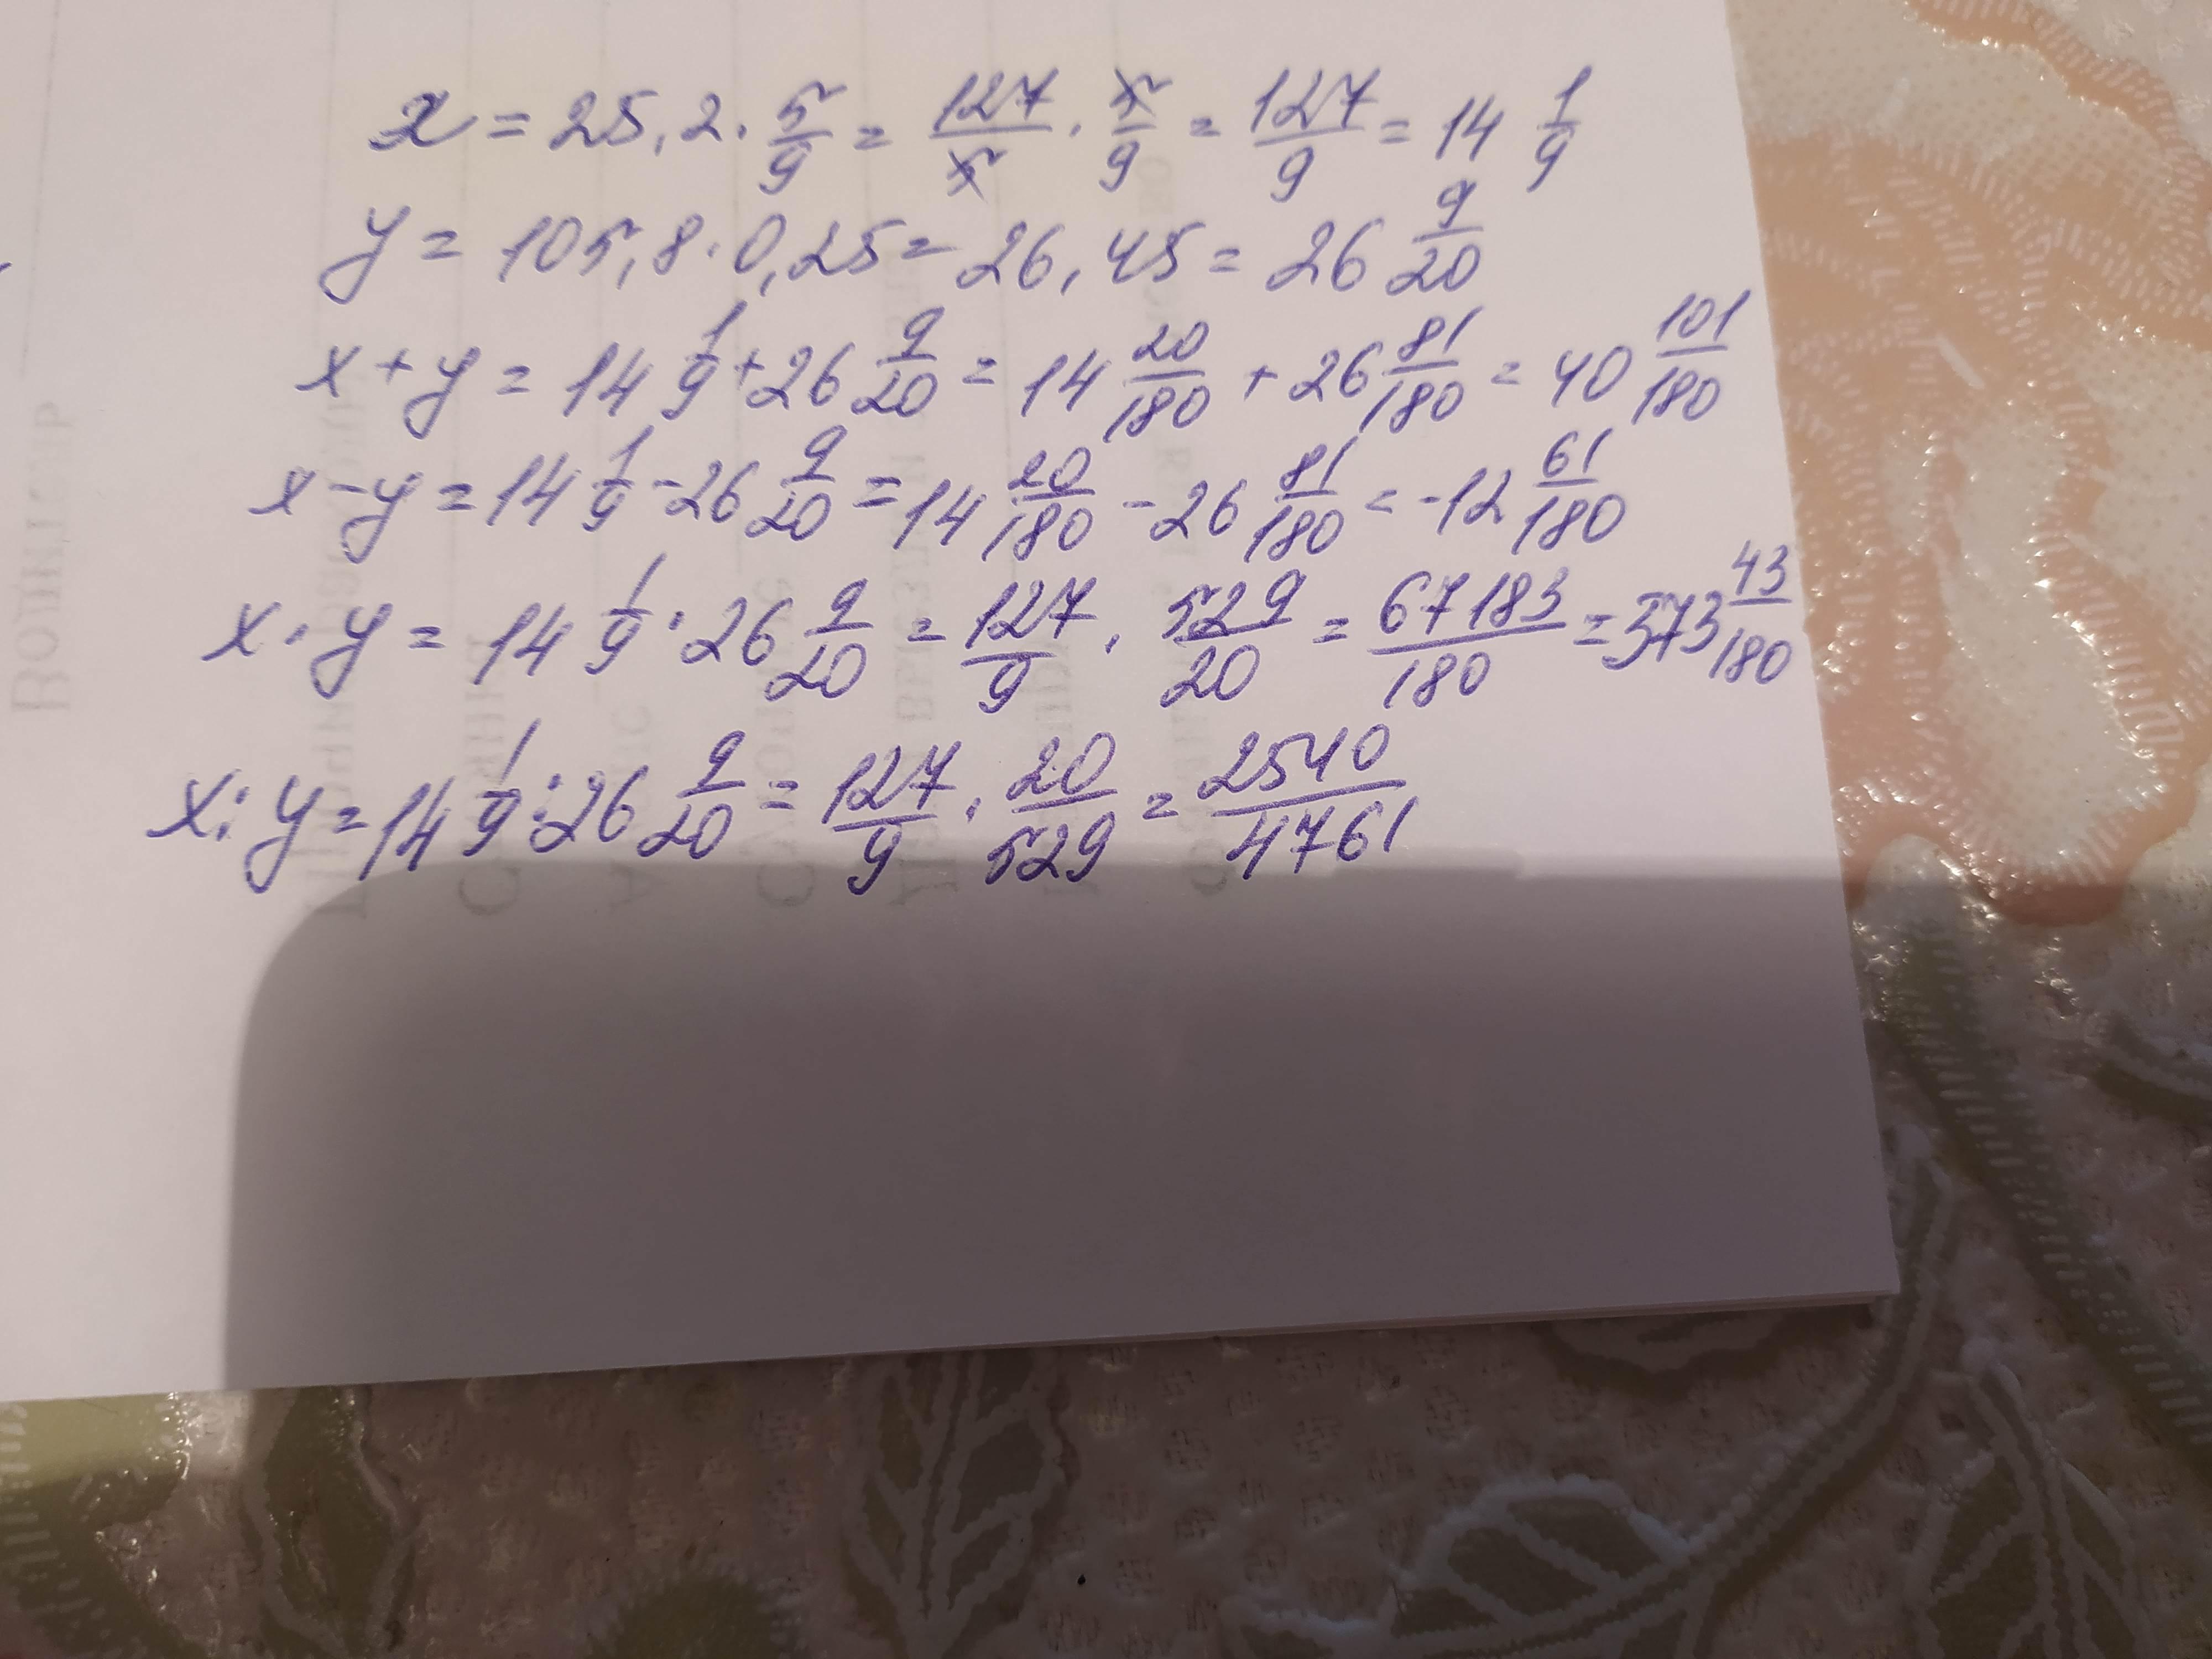 x = 25,2 · 5/9 = 127/5 · 5/9 = 127/9 = 14 1/9
y = 105,8 · 0,25 = 26,45 = 26 9/20
x + y = 14 1/9 + 26 9/20 = 14 20/180 + 26 81/180 = 40 101/180
x - y = 14 1/9 - 26 9/20 = 14 20/180 - 26 81/180 = -12 61/180
x · y = 14 1/9 · 26 9/20 = 127/9 · 529/20 = 67183/180 = 373 43/180
x : y = 14 1/9 : 26 9/20 = 127/9 · 20/529 = 2540/4761